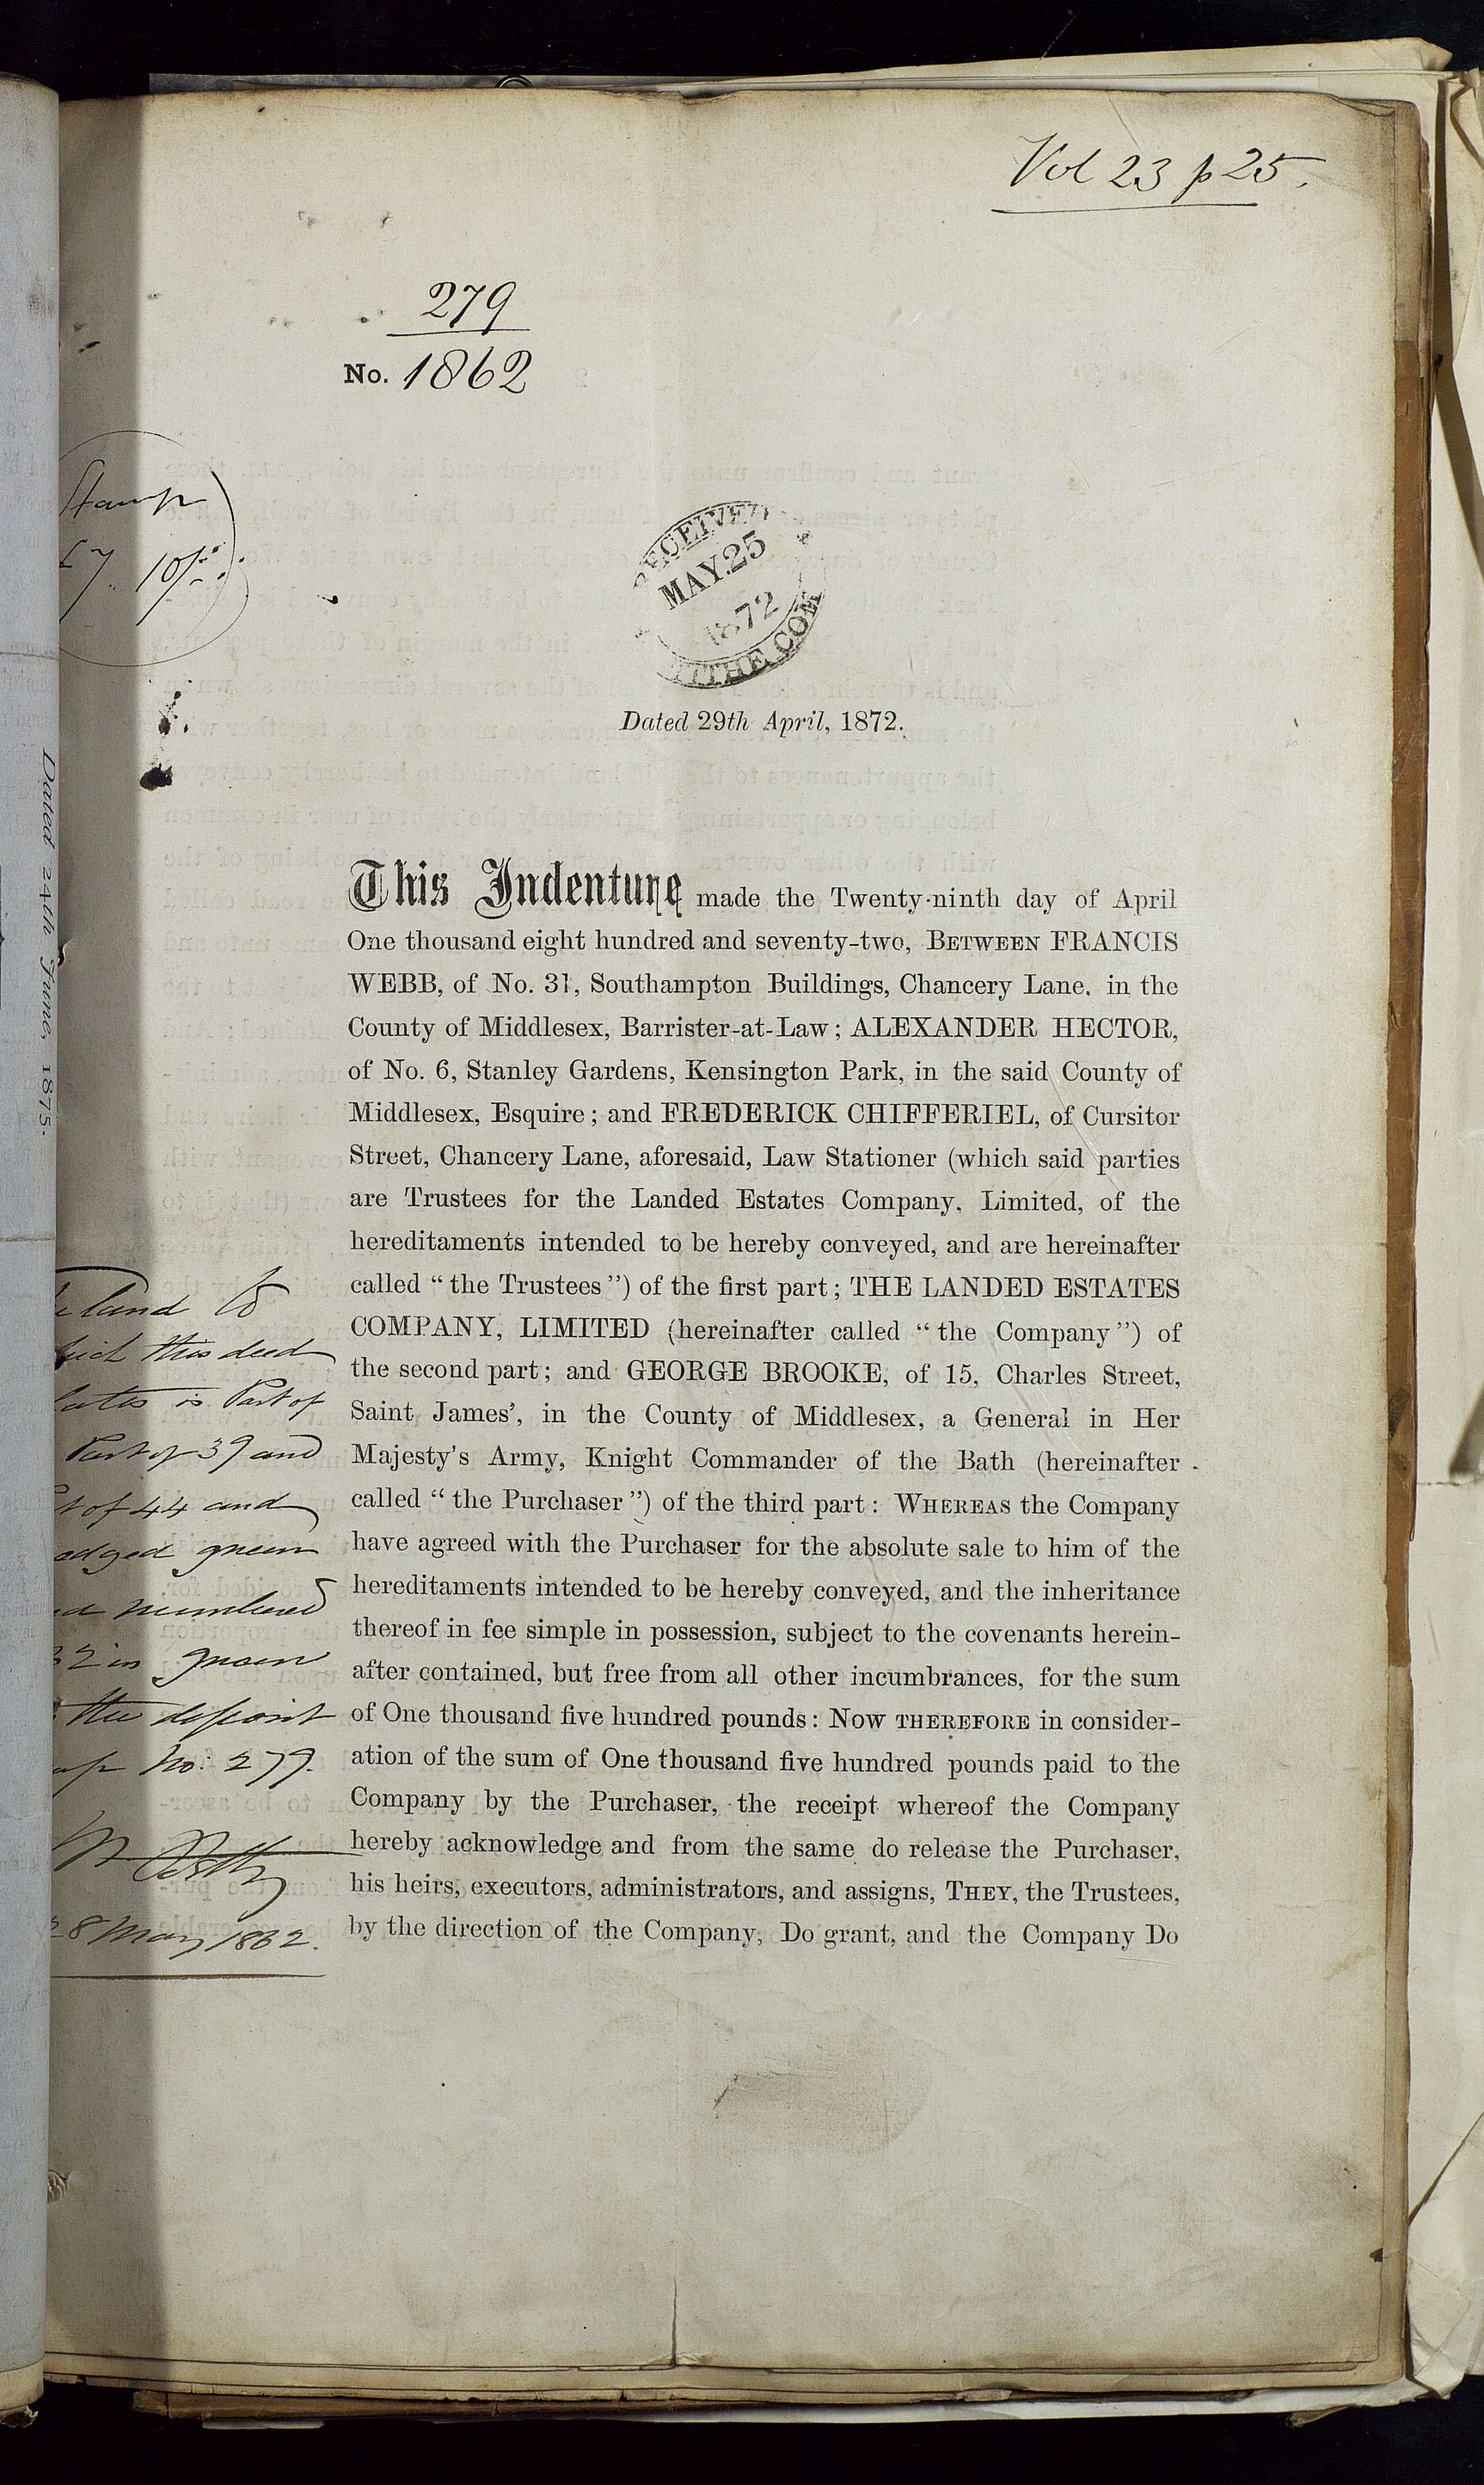 Vol 23 p 25.
279
No. 1862
Stamp
£7. 10/-
RECEIVED
MAY.25
1872
TITHE COM
Dated 29th April, 1872.
This Indenture made the Twenty-ninth day of April
One thousand eight hundred and seventy-two, BETWEEN FRANCIS
WEBB, of No. 31, Southampton Buildings, Chancery Lane, in the
County of Middlesex, Barrister-at-Law; ALEXANDER HECTOR,
of No. 6, Stanley Gardens, Kensington Park, in the said County of
Middlesex, Esquire; and FREDERICK CHIFFERIEL, of Cursitor
Street, Chancery Lane, aforesaid, Law Stationer (which said parties
are Trustees for the Landed Estates Company, Limited, of the
hereditaments intended to be hereby conveyed, and are hereinafter
called "the Trustees") of the first part; THE LANDED ESTATES
COMPANY, LIMITED (hereinafter called "the Company") of
the second part; and GEORGE BROOKE, of 15, Charles Street,
Saint James', in the County of Middlesex, a General in Her
Majesty's Army, Knight Commander of the Bath (hereinafter
called "the Purchaser") of the third part: WHEREAS the Company
have agreed with the Purchaser for the absolute sale to him of the
hereditaments intended to be hereby conveyed, and the inheritance
thereof in fee simple in possession, subject to the covenants herein-
after contained, but free from all other incumbrances, for the sum
of One thousand five hundred pounds: NOW THEREFORE in consider-
ation of the sum of One thousand five hundred pounds paid to the
Company by the Purchaser, the receipt whereof the Company
hereby acknowledge and from the same do release the Purchaser,
his heirs, executors, administrators, and assigns, THEY, the Trustees,
by the direction of the Company, Do grant, and the Company Do
land to
this deed
is Part of
Part of 39 and
of 44 and
edged green
numbered
32 in green
the deposit
No: 279.
28 May 1862.
Dated 24th June, 1875.